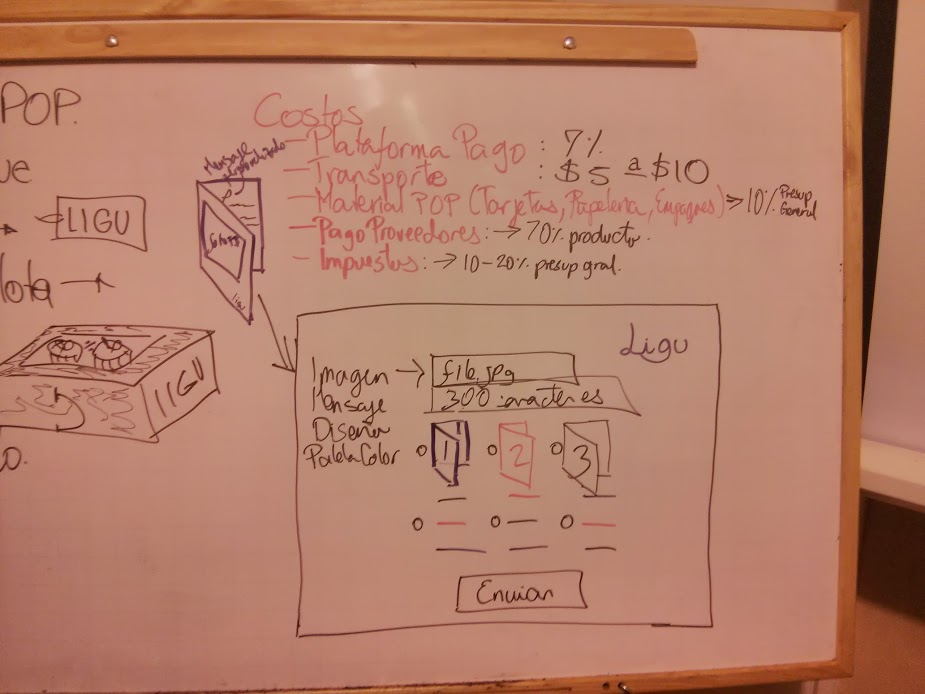 POP.
ue
LIGU
lota
LIGU
o.
Costos
- Plataforma Pago : 7%
- Transporte : $5 a $10
- Material POP (Tarjetas, Papeleria, Empaques) → 10% Presup General
- Pago Proveedores : → 70% producto.
- Impuestos : → 10-20% presup gral.
Mensaje
ligu
Ligu
Imagen → file.jpg
Mensaje 300 caracteres
Diseño 1 2 3
Paleta Color
Enviar